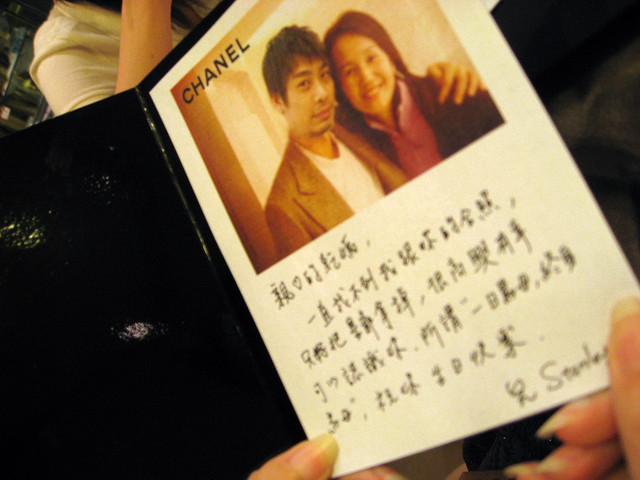 CHANEL
親的乾媽，
一直找不到我跟妳的合照，
只好把拿掉，很高興有幸
可以認識妳．所謂"一日為母，終身
為母"，祝妳 生日快樂．
兒 Stanley